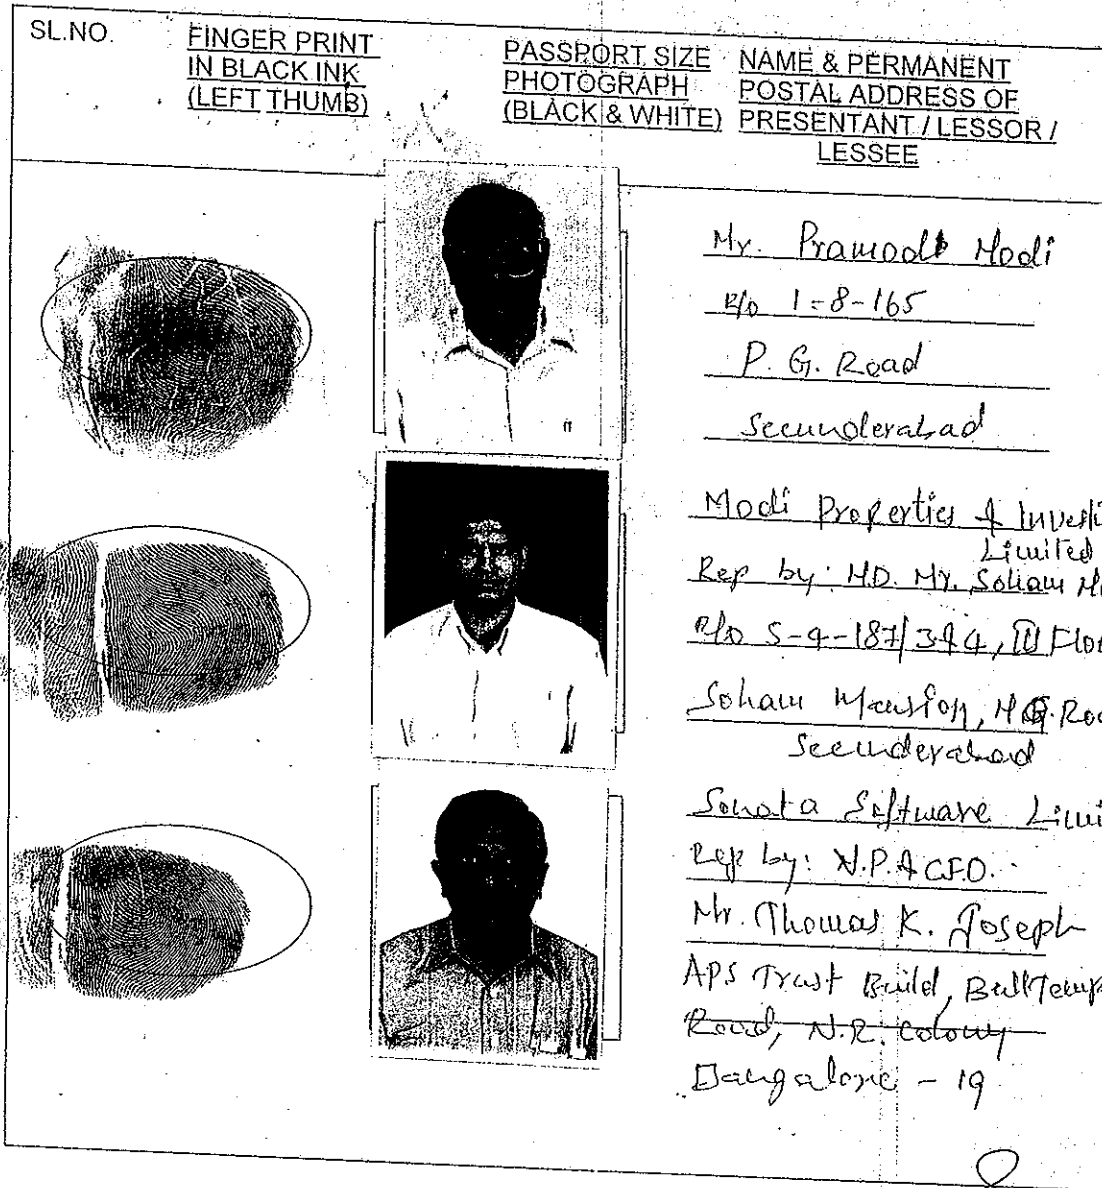 SL.NO.
FINGER PRINT
IN BLACK INK
(LEFT THUMB)
PASSPORT SIZE
PHOTOGRAPH
(BLACK & WHITE)
NAME & PERMANENT
POSTAL ADDRESS OF
PRESENTANT / LESSOR /
LESSEE
Mr. Pramod Modi
R/o 1-8-165
P. G. Road
Secunderabad
Modi Properties & Investi
Limited
Rep by: M.D. Mr. Soham M
R/o 5-4-187/3&4, III Floo
Soham Mansion, M.G. Roa
Secunderabad
Sonata Software Limi
Rep by: V.P. & C.F.O.
Mr. Thomas K. Joseph
APS Trust Build, Bull Temp
Road, N.R. colony
Bangalore - 19